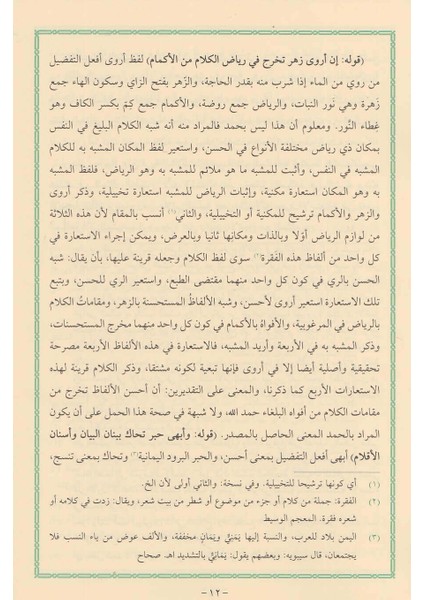 (قوله: إن أروى زهر تخرج في رياض الكلام من الأكمام) لفظ أروى أفعل التفضيل
من روي من الماء إذا شرب منه بقدر الحاجة، والزهر بفتح الزاي وسكون الهاء جمع
زهرة وهي نور النبات، والرياض جمع روضة، والأكمام جمع كم بكسر الكاف وهو
غطاء النور. ومعلوم أن هذا ليس بحمد فالمراد منه أنه شبه الكلام البليغ في النفس
بمكان ذي رياض مختلفة الأنواع في الحسن، واستعير لفظ المكان المشبه به للكلام
المشبه في النفس، وأثبت للمشبه ما هو ملائم للمشبه به وهو الرياض، فلفظ المشبه
به وهو المكان استعارة مكنية، وإثبات الرياض للمشبه استعارة تخييلية، وذكر أروى
والزهر والأكمام ترشيح للمكنية أو التخييلية، والثاني(١) أنسب بالمقام لأن هذه الثلاثة
من لوازم الرياض أولا وبالذات ومكانها ثانيا وبالعرض، ويمكن إجراء الاستعارة في
كل واحد من ألفاظ هذه الفقرة(٢) سوى لفظ الكلام وجعله قرينة عليها، بأن يقال: شبه
الحسن بالري في كون كل واحد منهما مقتضى الطبع، واستعير الري للحسن، وبتبع
تلك الاستعارة استعير أروى لأحسن، وشبه الألفاظ المستحسنة بالزهر، ومقامات الكلام
بالرياض في المرغوبية، والأفواه بالأكمام في كون كل واحد منهما مخرج المستحسنات،
وذكر المشبه به في الأربعة وأريد المشبه، فالاستعارة في هذه الألفاظ الأربعة مصرحة
تحقيقية وأصلية أيضا إلا في أروى فإنها تبعية لكونه مشتقا، وذكر الكلام قرينة لهذه
الاستعارات الأربع كما ذكرنا، والمعنى على التقديرين: أن أحسن الألفاظ تخرج من
مقامات الكلام من أفواه البلغاء حمد الله، ولا شبهة في صحة هذا الحمل على أن يكون
المراد بالحمد المعنى الحاصل بالمصدر. (قوله: وأبهى حبر تحاك ببنان البيان وأسنان
الأقلام) أبهى أفعل التفضيل بمعنى أحسن، والحبر البرود اليمانية(٣) وتحاك بمعنى تنسج،
(١) أي كونها ترشيحا للتخييلية. وفي نسخة: والثاني أولى لأن الخ.
(٢) الفقرة: جملة من كلام أو جزء من موضوع أو شطر من بيت شعر، ويقال: زدت في كلامه أو
شعره فقرة. المعجم الوسيط
(٣) اليمن بلاد للعرب، والنسبة إليها يَمَنِيٌّ ويَمَانٍ مخففة، والألف عوض من ياء النسب فلا
يجتمعان، قال سيبويه: وبعضهم يقول: يَمَانِيٌّ بالتشديد اهـ صحاح
- ١٢ -